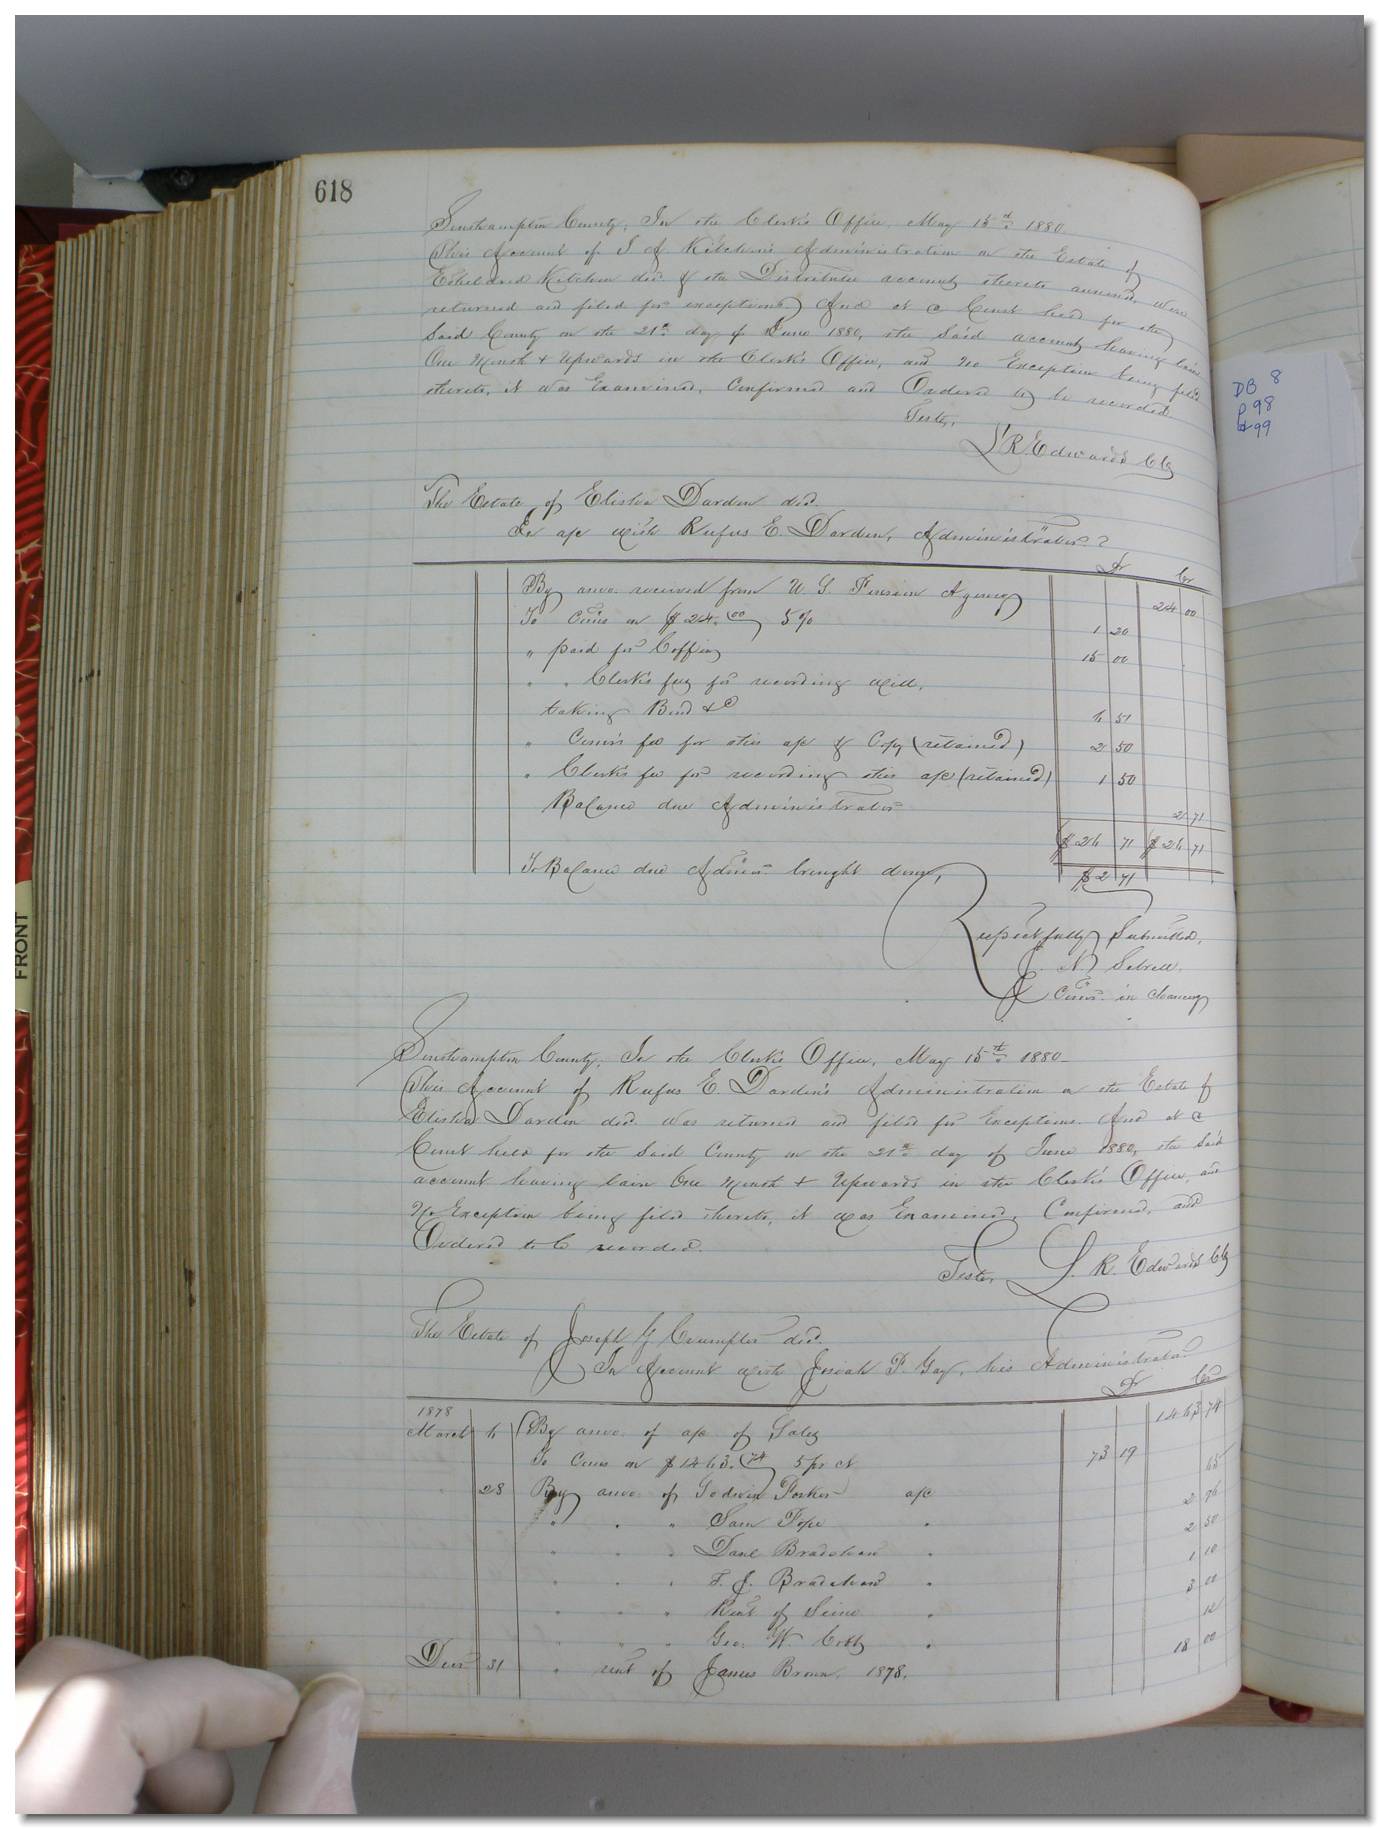 618
Southampton County, In the Clerk's Office, May 15th 1880.
This Account of J A Kitchen's Administration on the Estate of
Kitchen decd & the Distributee accounts thereto annexed, were
returned and filed for exceptions. And at a Court held for the
said County on the 21st day of June 1880, the said accounts having lain
One Month & Upwards in the Clerk's Office, and No Exception being filed
thereto, it was Examined, Confirmed and Ordered to be recorded
Teste,
L R. Edwards Clk
The Estate of Elisha Darden decd.
In a/c with Rufus E. Darden, Administrator
Dr Cr
By amo. received from U. S. Pension Agency 24 00
To Coms on $24.00 5% 1 20
" paid for Coffin 15 00
" " Clerk's fees for recording will,
taking Bond &c 6 51
" Comr's fee for this a/c & Copy (retained) 2 50
" Clerk's fee for recording this a/c (retained) 1 50
Balance due Administrator 2 71
$26 71 $26 71
To Balance due Admor brought down, $2 71
Respectfully Submitted,
J. N. Sebrell,
Comr. in chancery
Southampton County, In the Clerk's Office, May 15th 1880
This Account of Rufus E. Darden's Administration on the Estate of
Elisha Darden decd. was returned and filed for Exceptions. And at a
Court held for the said County on the 21st day of June 1880, the said
account having lain One Month & Upwards in the Clerk's Office, and
No Exception being filed thereto, it was Examined, Confirmed, and
Ordered to be recorded.
Teste, L. R. Edwards Clk
The Estate of Joseph G Crumpler decd.
In Account with Josiah P. Gay, his Administrator
Dr Cr
1878
March 6 By amo. of a/c of Sales 1463 74
To Coms on $1463.74 5 pr ct 73 19
28 By amo. of Godwin Porker a/c 65
" " " Sam Pope " 2 96
" " " Danl Bradshaw " 2 50
" " " T. J. Bradshaw " 1 10
" " " Rent of Seine " 3 00
" " " Geo. W. Cobb " 12
Decr 31 " rent of James Brown, 1878, 18 00
FRONT
DB 8
p 98
99